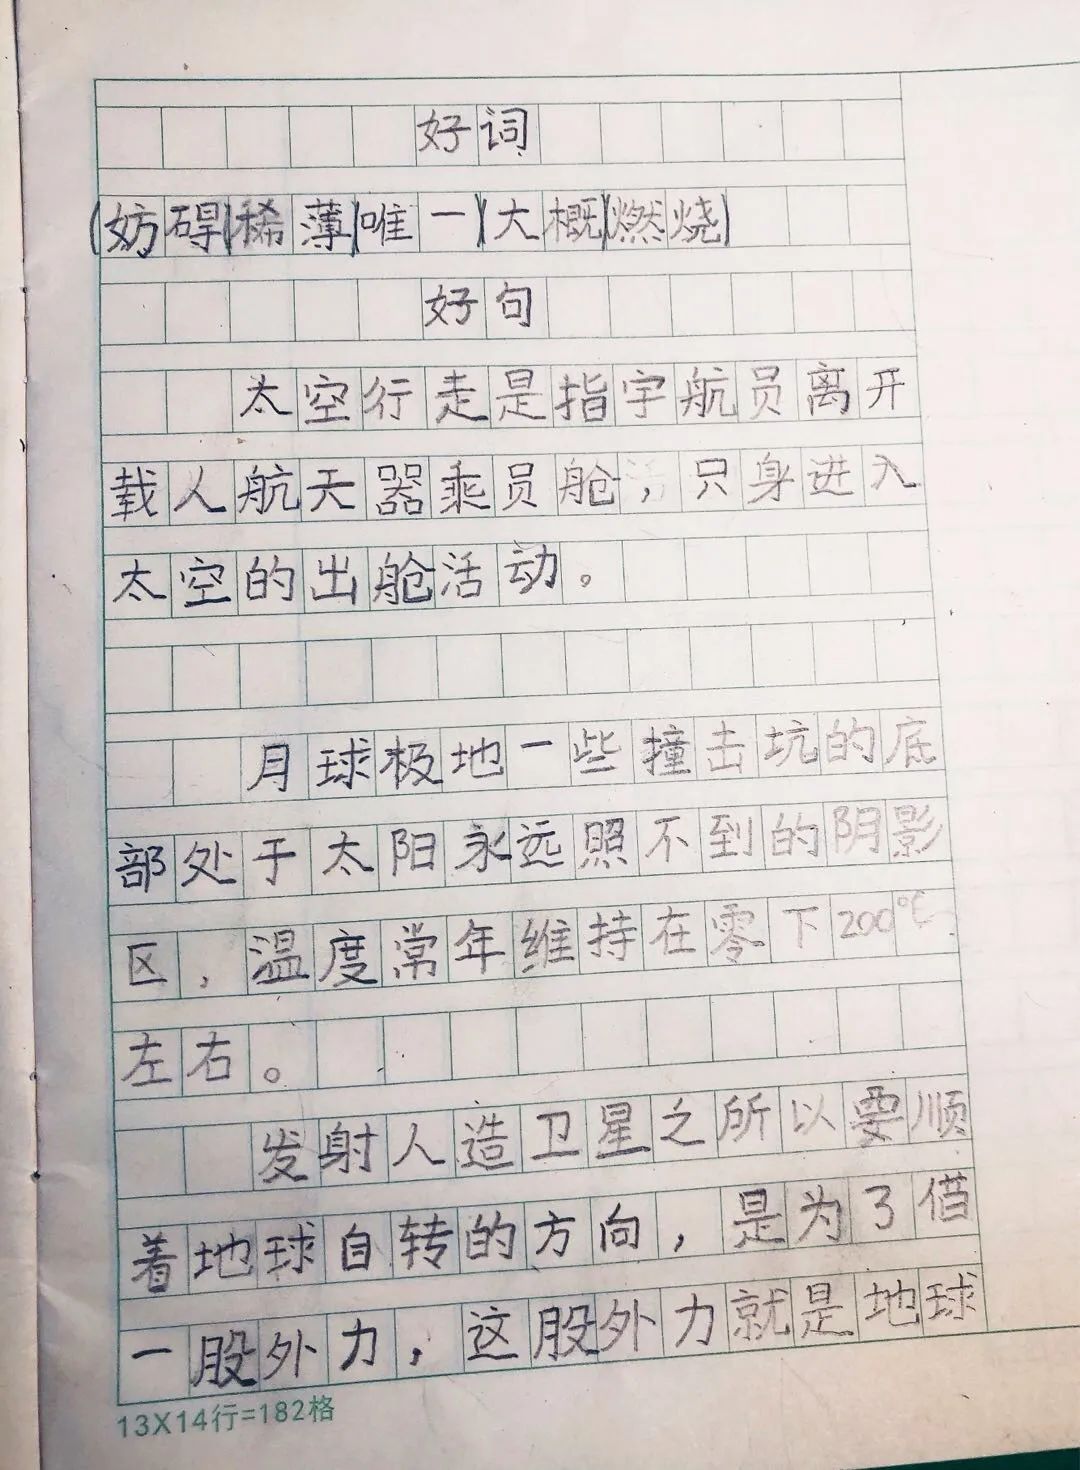 好词
(妨碍)(稀薄)(唯一)(大概)(燃烧)
好句
太空行走是指宇航员离开
载人航天器乘员舱，只身进入
太空的出舱活动。
月球极地一些撞击坑的底
部处于太阳永远照不到的阴影
区，温度常年维持在零下200℃
左右。
发射人造卫星之所以要顺
着地球自转的方向，是为了借
一股外力，这股外力就是地球
13X14行=182格